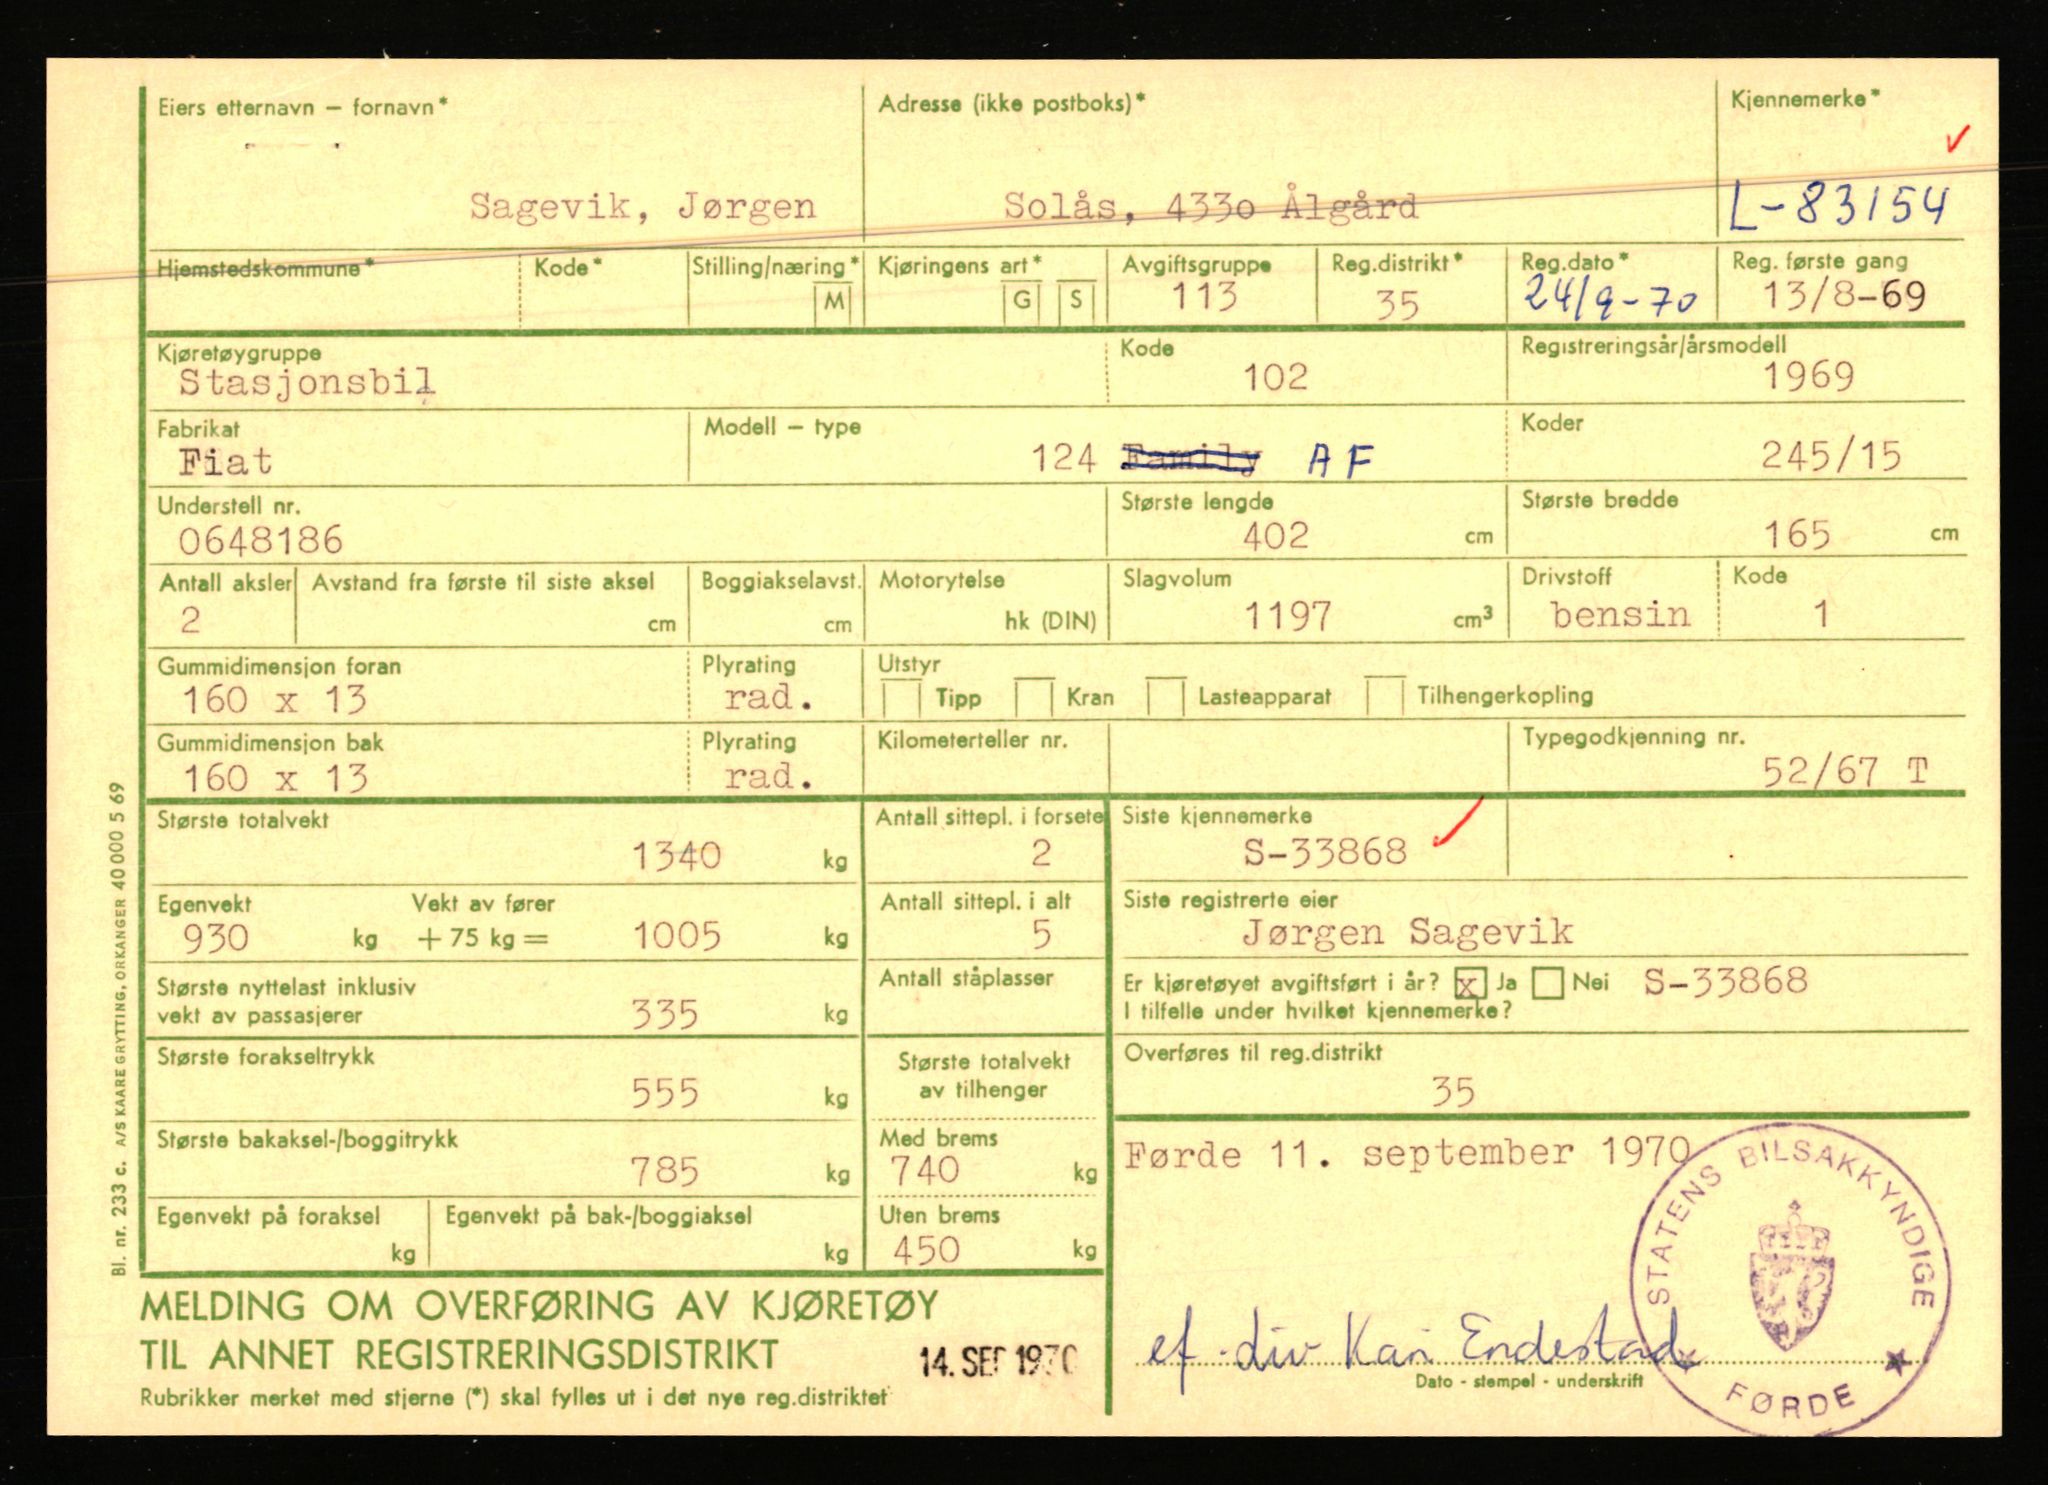 Eiers etternavn – fornavn*
Sagevik, Jørgen
Adresse (ikke postboks)*
Solås, 4330 Ålgård
Kjennemerke*
L-83154
Hjemstedskommune*
Kode*
Stilling/næring*
M
Kjøringens art*
G S
Avgiftsgruppe
113
Reg.distrikt*
35
Reg.dato*
24/9-70
Reg. første gang
13/8-69
Kjøretøygruppe
Stasjonsbil
Kode
102
Registreringsår/årsmodell
1969
Fabrikat
Fiat
Modell – type
124 Family AF
Koder
245/15
Understell nr.
0648186
Største lengde
402 cm
Største bredde
165 cm
Antall aksler
2
Avstand fra første til siste aksel
cm
Boggiakselavst.
cm
Motorytelse
hk (DIN)
Slagvolum
1197 cm³
Drivstoff
bensin
Kode
1
Gummidimensjon foran
160 x 13
Plyrating
rad.
Utstyr
Tipp Kran Lasteapparat Tilhengerkopling
Gummidimensjon bak
160 x 13
Plyrating
rad.
Kilometerteller nr.
Typegodkjenning nr.
52/67 T
Største totalvekt
1340 kg
Antall sittepl. i forsete
2
Siste kjennemerke
S-33868
Egenvekt
930 kg
Vekt av fører
+ 75 kg = 1005 kg
Antall sittepl. i alt
5
Siste registrerte eier
Jørgen Sagevik
Største nyttelast inklusiv
vekt av passasjerer
335 kg
Antall ståplasser
Er kjøretøyet avgiftsført i år? x Ja Nei S-33868
I tilfelle under hvilket kjennemerke?
Største forakseltrykk
555 kg
Største totalvekt
av tilhenger
Overføres til reg.distrikt
35
Største bakaksel-/boggitrykk
785 kg
Med brems
740 kg
Egenvekt på foraksel
kg
Egenvekt på bak-/boggiaksel
kg
Uten brems
450 kg
Førde 11. september 1970
STATENS BILSAKKYNDIGE
FØRDE
ef. div Kari Endestad
Dato - stempel - underskrift
MELDING OM OVERFØRING AV KJØRETØY
TIL ANNET REGISTRERINGSDISTRIKT
14. SEP 1970
Rubrikker merket med stjerne (*) skal fylles ut i det nye reg.distriktet
Bl. nr. 233 c. A/S KAARE GRYTTING, ORKANGER 40000 5 69